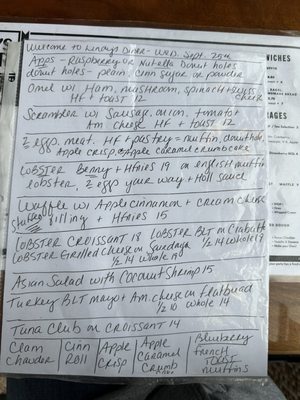 Welcome to Lindays Diner - WED. Sept. 25th
Apps - Raspberry or Nutella Donut holes
donut holes - plain, cinn sugar or powder
Omel w/ Ham, mushroom, spinach + swiss cheese
HF + toast 12
Scrambler w/ Sausage, onion, tomato +
Am. cheese HF + toast 12
2 eggs, meat, HF + pastry = muffin, donut hole,
apple crisp, apple caramel crumb cake
LOBSTER Benny + HFries 19 on english muffin
lobster, 2 eggs your way + holl sauce
Waffle w/ Apple cinnamon + cream cheese
stuffed filling + HFries 15
LOBSTER CROISSANT 18 LOBSTER BLT on Ciabatta
1/2 14 whole 19
LOBSTER Grilled cheese on Sourdough
1/2 14 whole 19
Asian Salad with Coconut Shrimp 15
Turkey BLT mayo + Am. cheese on flatbread
1/2 10 whole 14
Tuna Club on CROISSANT 14
Clam Chowder
Cinn Roll
Apple Crisp
Apple Caramel Crumb
Blueberry french TOAST muffins
WICHES